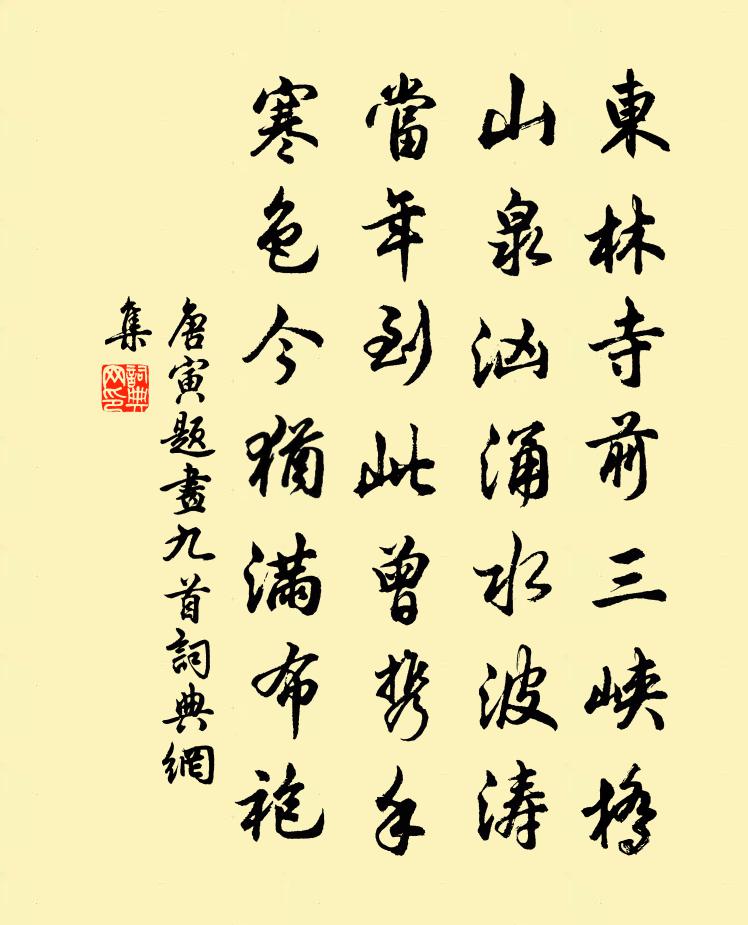 東林寺前三峽橋
山泉洶涌水波濤
當年到此曾携手
寒色今猶滿布袍
唐寅題畫九首詞典網
集
詞典
网印